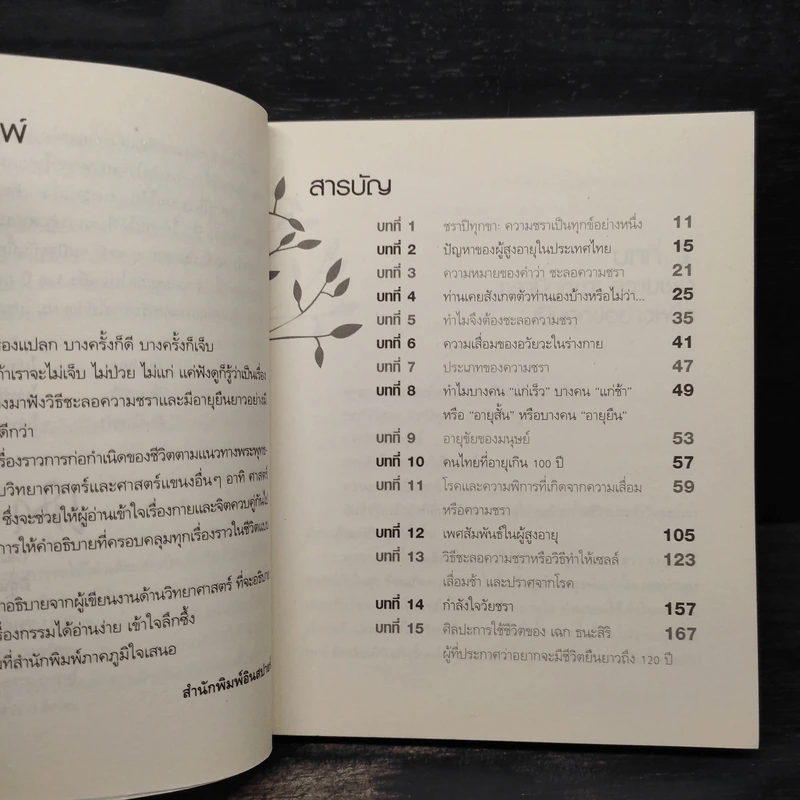 พ์
องแปลก บางครั้งก็ดี บางครั้งก็เจ็บ
ถ้าเราจะไม่เจ็บ ไม่ป่วย ไม่แก่ แค่ฟังดูก็รู้ว่าเป็นเรื่อง
งมาฟังวิธีชะลอความชราและมีอายุยืนยาวอย่างมี
ดีกว่า
รื่องราวการก่อกำเนิดของชีวิตตามแนวทางพระพุทธ-
บวิทยาศาสตร์และศาสตร์แขนงอื่นๆ อาทิ ศาสตร์
ซึ่งจะช่วยให้ผู้อ่านเข้าใจเรื่องกายและจิตควบคู่กันไป
การให้คำอธิบายที่ครอบคลุมทุกเรื่องราวในชีวิตแบบ
าอธิบายจากผู้เขียนงานด้านวิทยาศาสตร์ ที่จะอธิบาย
รื่องกรรมได้อ่านง่าย เข้าใจลึกซึ้ง
มที่สำนักพิมพ์ภาคภูมิใจเสนอ
สำนักพิมพ์อินสปายร์
สารบัญ
บทที่ 1 ชราปิทุกขา: ความชราเป็นทุกข์อย่างหนึ่ง 11
บทที่ 2 ปัญหาของผู้สูงอายุในประเทศไทย 15
บทที่ 3 ความหมายของคำว่า ชะลอความชรา 21
บทที่ 4 ท่านเคยสังเกตตัวท่านเองบ้างหรือไม่ว่า... 25
บทที่ 5 ทำไมจึงต้องชะลอความชรา 35
บทที่ 6 ความเสื่อมของอวัยวะในร่างกาย 41
บทที่ 7 ประเภทของความชรา 47
บทที่ 8 ทำไมบางคน "แก่เร็ว" บางคน "แก่ช้า" 49
หรือ "อายุสั้น" หรือบางคน "อายุยืน"
บทที่ 9 อายุขัยของมนุษย์ 53
บทที่ 10 คนไทยที่อายุเกิน 100 ปี 57
บทที่ 11 โรคและความพิการที่เกิดจากความเสื่อม 59
หรือความชรา
บทที่ 12 เพศสัมพันธ์ในผู้สูงอายุ 105
บทที่ 13 วิธีชะลอความชราหรือวิธีทำให้เซลล์ 123
เสื่อมช้า และปราศจากโรค
บทที่ 14 กำลังใจวัยชรา 157
บทที่ 15 ศิลปะการใช้ชีวิตของ เฉก ธนะสิริ 167
ผู้ที่ประกาศว่าอยากจะมีชีวิตยืนยาวถึง 120 ปี